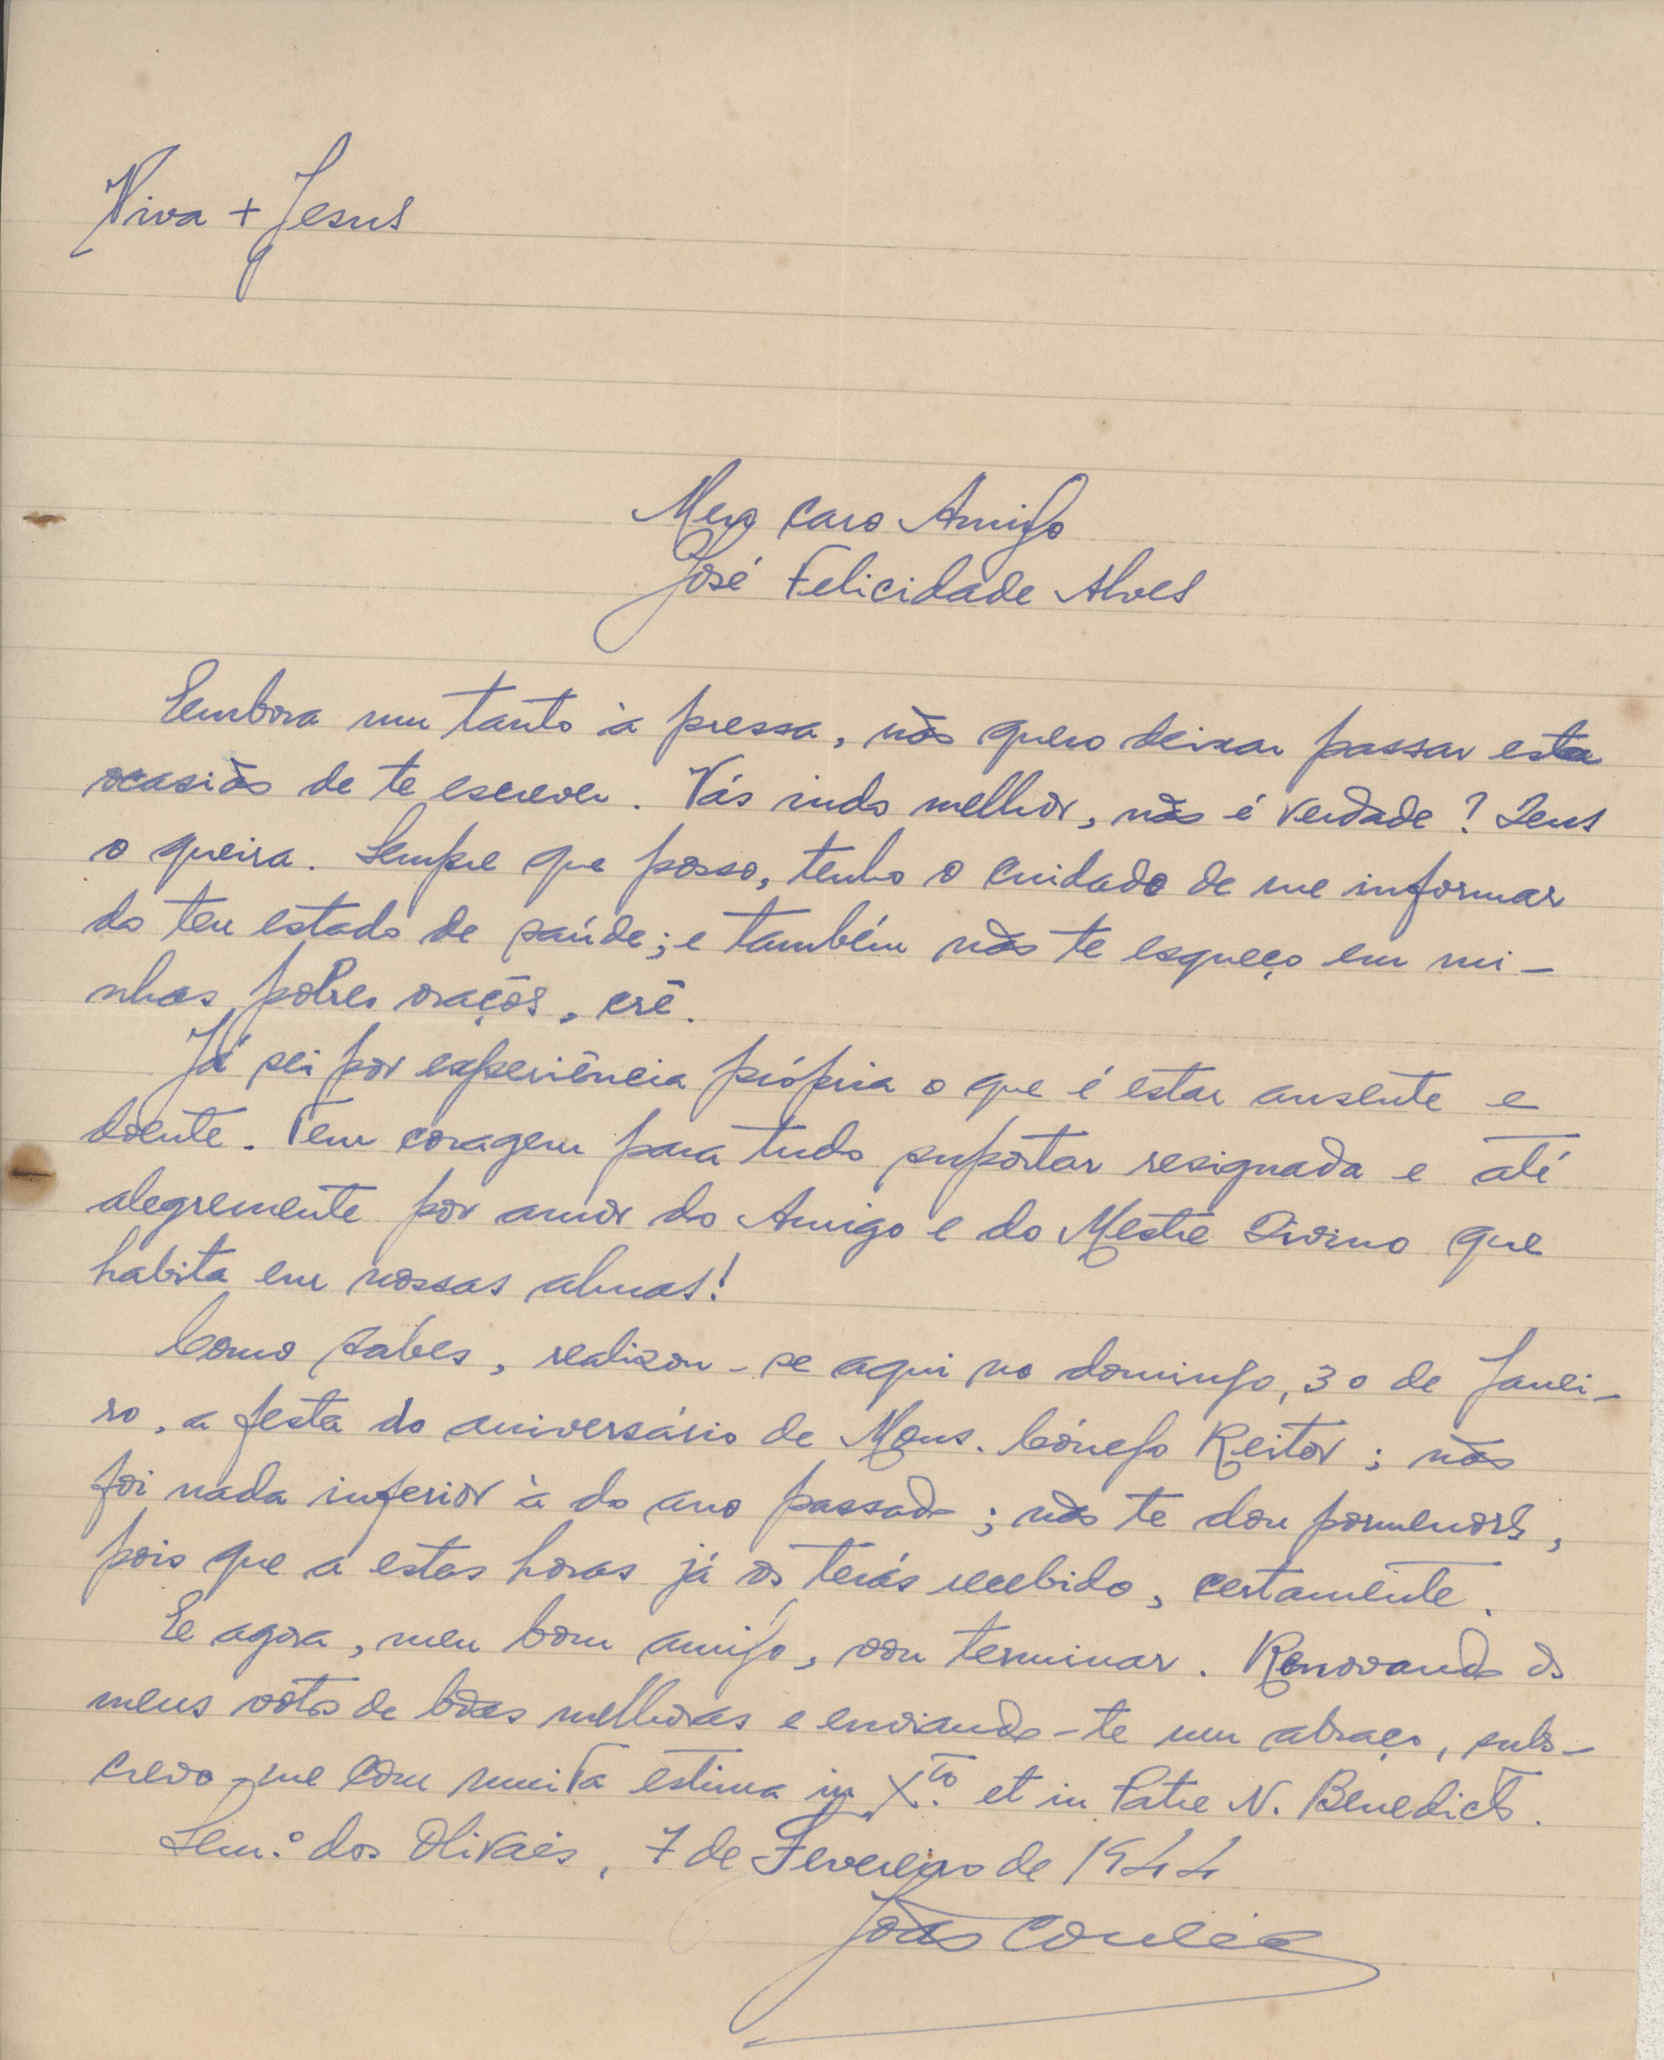 Viva + Jesus
Meu caro Amigo
José Felicidade Alves
Embora um tanto à pressa, não quero deixar passar esta
ocasião de te escrever. Vás indo melhor, não é verdade? Deus
o queira. Sempre que posso, tenho o cuidado de me informar
do teu estado de saúde; e também não te esqueço em mi-
nhas pobres orações, crê.
Já sei por experiência própria o que é estar ausente e
doente. Tem coragem para tudo suportar resignada e até
alegremente por amor do Amigo e do Mestre Divino que
habita em nossas almas!
Como sabes, realizou-se aqui no domingo, 30 de Janei-
ro, a festa do aniversário de Mons. Cónego Reitor; não
foi nada inferior à do ano passado; não te dou pormenores,
pois que a estas horas já os terás recebido, certamente.
E agora, meu bom amigo, vou terminar. Renovando os
meus votos de boas melhoras e enviando-te um abraço, subs-
crevo-me com muita estima in X.to et in Patre N. Benedicto.
Sem.o dos Olivais, 7 de Fevereiro de 1944
João